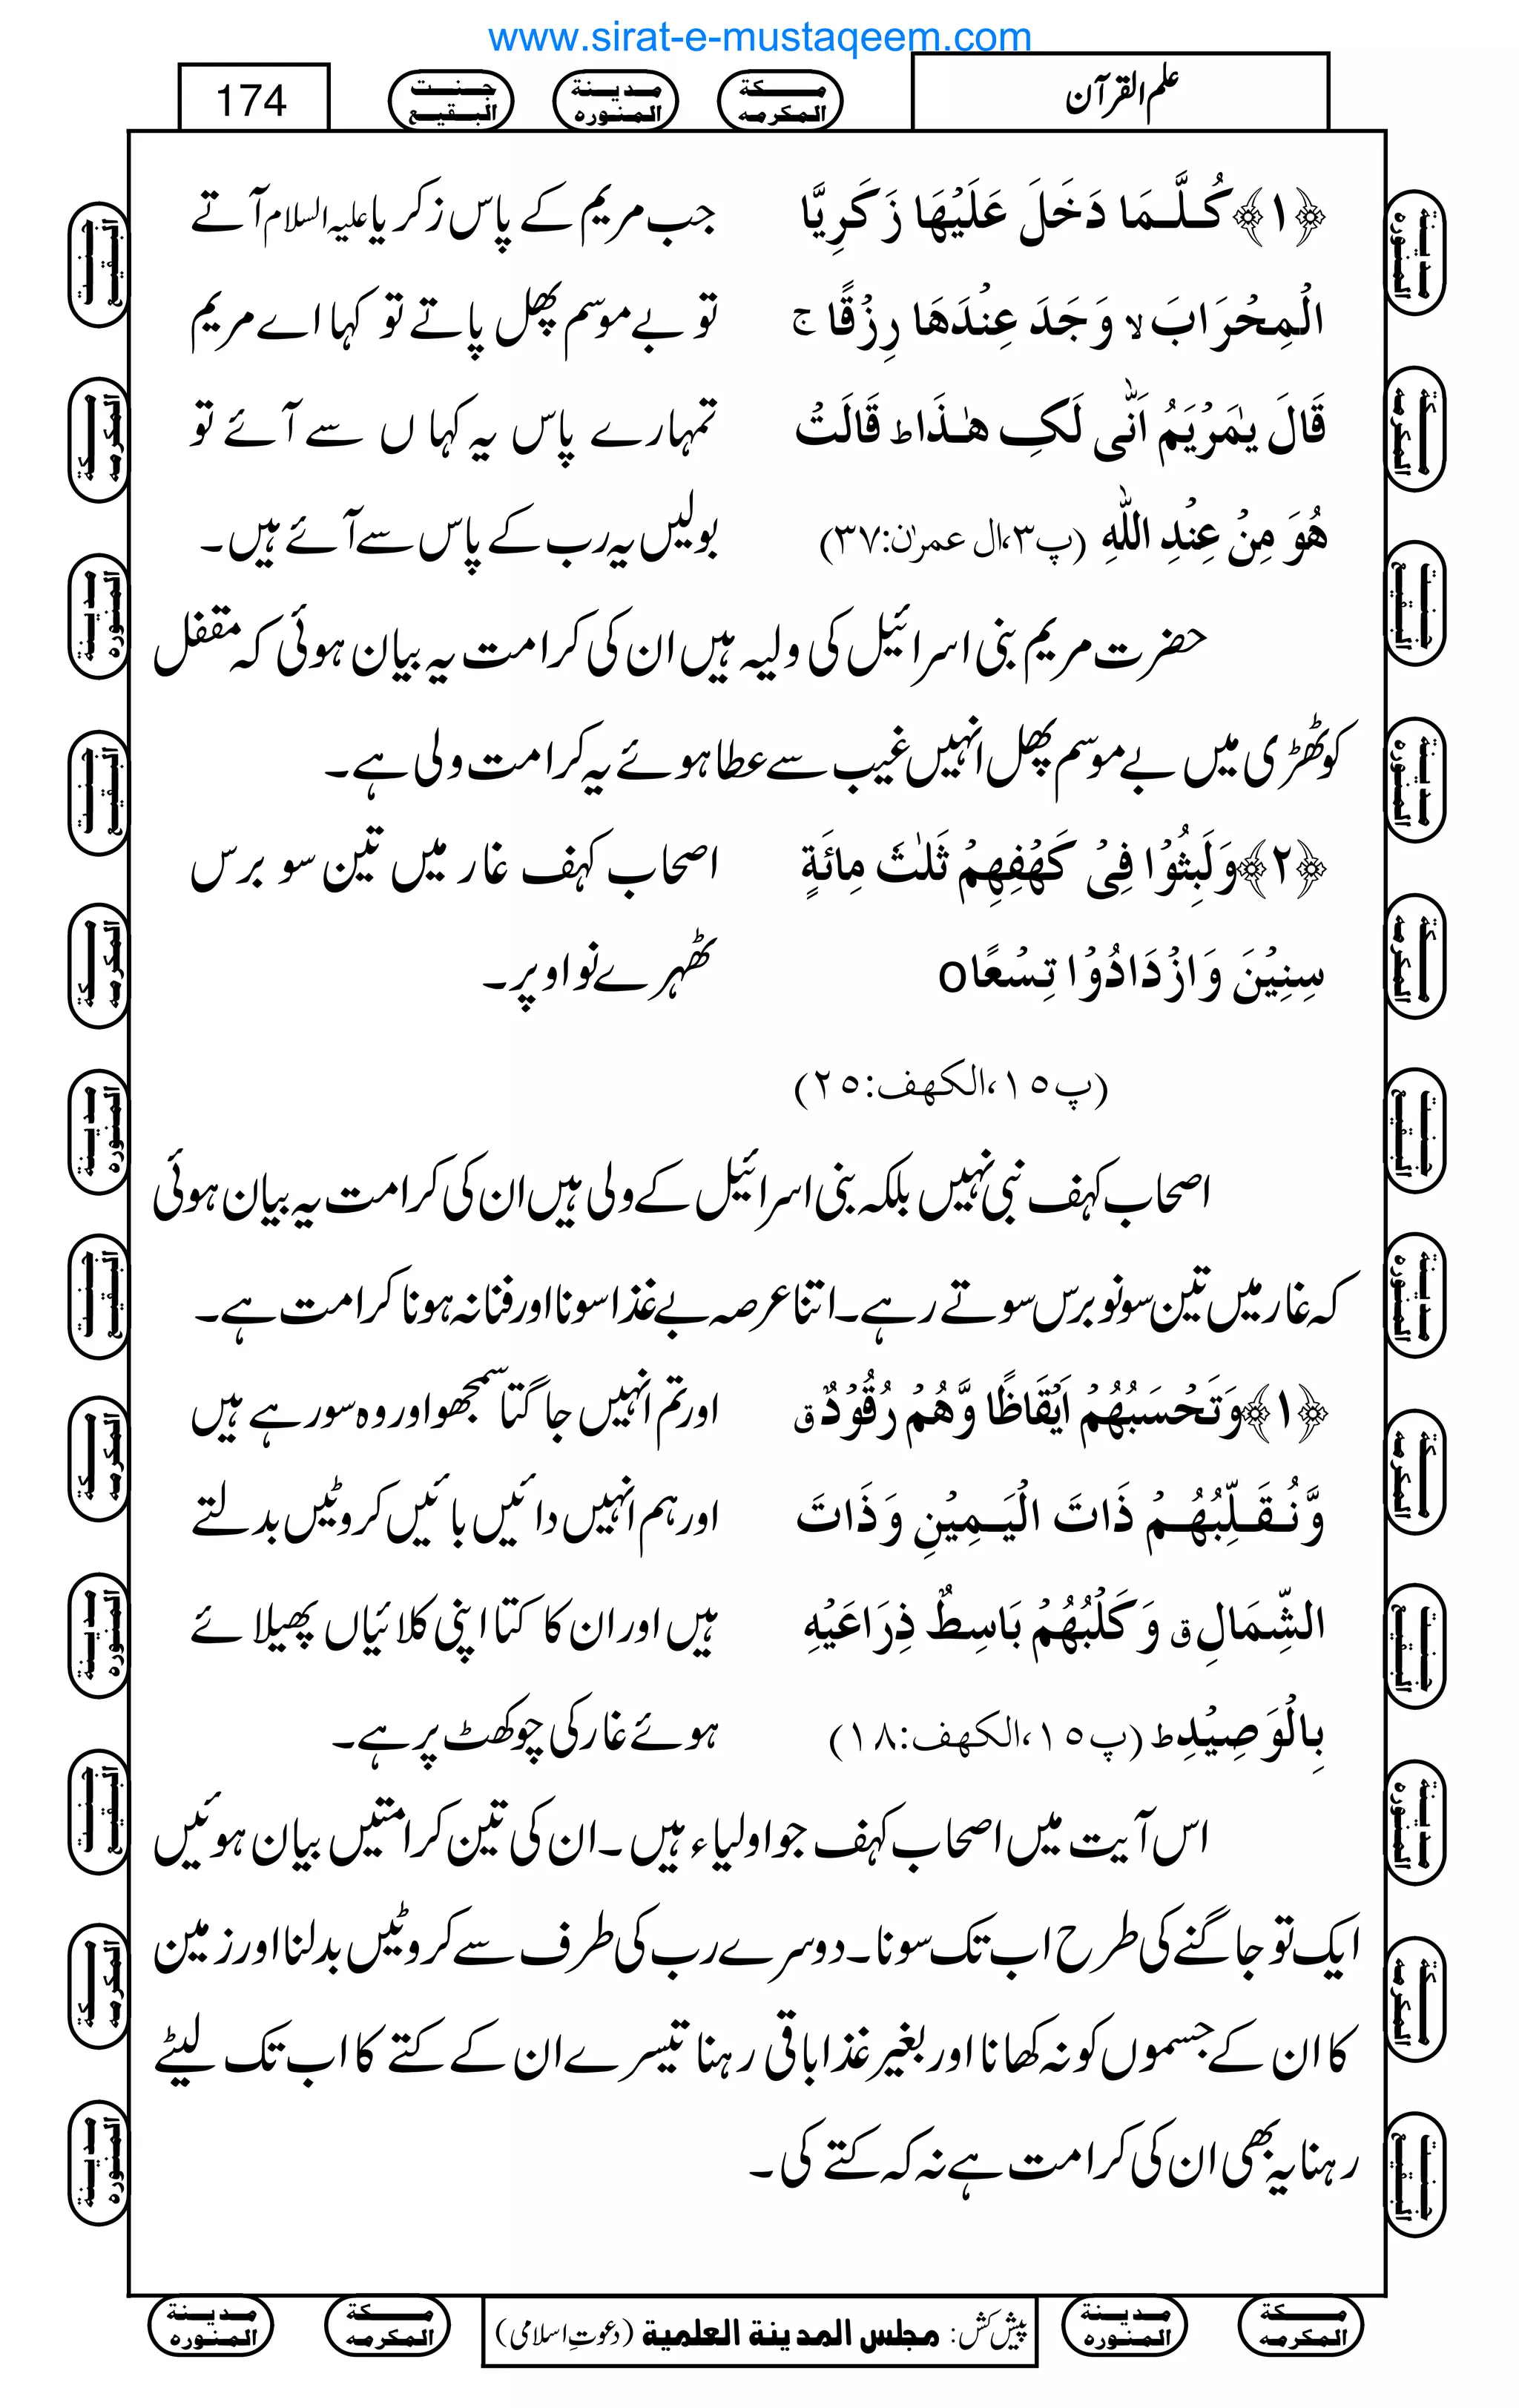 www.sirat-e-mustaqeem.com
علم القرآن
مکۃ المکرمہ
مدینۃ المنورہ
جنت البقیع
174
﴿۱﴾ کُلَّمَا دَخَلَ عَلَیْهَا زَکَرِیَّا
جب مریم کے پاس زکریا علیہ السلام آتے
الْمِحْرَابَ لا وَجَدَ عِنْدَهَا رِزْقًا ج
تو بے موسم پھل پاتے تو کہا اے مریم
قَالَ یٰمَرْیَمُ اَنّٰی لَکِ هٰذَا ط قَالَتْ
تمہارے پاس یہ کہاں سے آئے تو
هُوَ مِنْ عِنْدِ اللّٰهِ (پ۳،ال عمرٰن:۳۷)
بولیں یہ رب کے پاس سے آئے ہیں۔
حضرت مریم بنی اسرائیل کی ولیہ ہیں ان کی کرامت یہ بیان ہوئی کہ مقفل
کوٹھڑی میں بے موسم پھل انہیں غیب سے عطا ہوئے یہ کرامت ولی ہے۔
﴿۲﴾ وَلَبِثُوْا فِیْ کَهْفِهِمْ ثَلٰثَ مِائَةٍ
اصحاب کہف غار میں تین سو برس
سِنِیْنَ وَ ازْدَادُوْا تِسْعًا o
ٹھہرے نو اوپر۔
(پ۱۵،الکهف:۲۵)
اصحاب کہف نبی نہیں بلکہ بنی اسرائیل کے ولی ہیں ان کی کرامت یہ بیان ہوئی
کہ غار میں تین سونو برس سوتے رہے۔ اتنا عرصہ بے غذا سونا اور فنا نہ ہونا کرامت ہے۔
﴿۱﴾ وَتَحْسَبُهُمْ اَیْقَاظًا وَّهُمْ رُقُوْدٌ ق
اور تم انہیں جاگتا سمجھو اور وہ سو رہے ہیں
وَّنُقَلِّبُهُمْ ذَاتَ الْیَمِیْنِ وَ ذَاتَ
اور ہم انہیں دائیں بائیں کروٹیں بدلتے
الشِّمَالِ ق وَ کَلْبُهُمْ بَاسِطٌ ذِرَاعَیْهِ
ہیں اور ان کا کتا اپنی کلائیاں پھیلائے
بِالْوَصِیْدِ ط (پ۱۵،الکهف:۱۸)
ہوئے غار کی چوکھٹ پر ہے۔
اس آیت میں اصحاب کہف جو اولیاء ہیں۔ ان کی تین کرامتیں بیان ہوئیں
ایک تو جاگنے کی طرح اب تک سونا۔ دوسرے رب کی طرف سے کروٹیں بدلنا اور زمین
کا ان کے جسموں کو نہ کھانا اور بغیر غذا باقی رہنا تیسرے ان کے کتے کا اب تک لیٹے
رہنا یہ بھی ان کی کرامت ہے نہ کہ کتے کی۔
مدینۃ المنورہ
مکۃ المکرمہ
جنت البقیع
مدینۃ المنورہ
مکۃ المکرمہ
جنت البقیع
مدینۃ المنورہ
مکۃ المکرمہ
جنت البقیع
مدینۃ المنورہ
مکۃ المکرمہ
جنت البقیع
جنت البقیع
مکۃ المکرمہ
مدینۃ المنورہ
جنت البقیع
مکۃ المکرمہ
مدینۃ المنورہ
جنت البقیع
مکۃ المکرمہ
مدینۃ المنورہ
جنت البقیع
مکۃ المکرمہ
مدینۃ المنورہ
مکۃ المکرمہ
مدینۃ المنورہ
پیش کش: مجلس المدینة العلمیة (دعوتِ اسلامی)
مکۃ المکرمہ
مدینۃ المنورہ